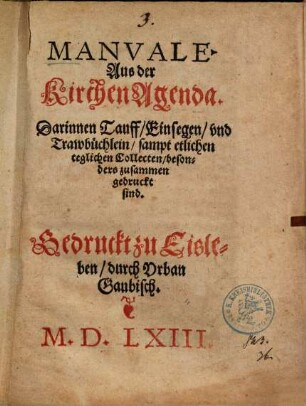 3.
MANVALE
Aus der
Kirchen Agenda.
Darinnen Tauff/Einsegen/vnd
Trawbüchlein/sampt etlichen
teglichen Collecten/beson-
ders zusammen
gedruckt
sind.
Gedruckt zu Eisle-
ben/durch Vrban
Gaubisch.
M. D. LXIII.